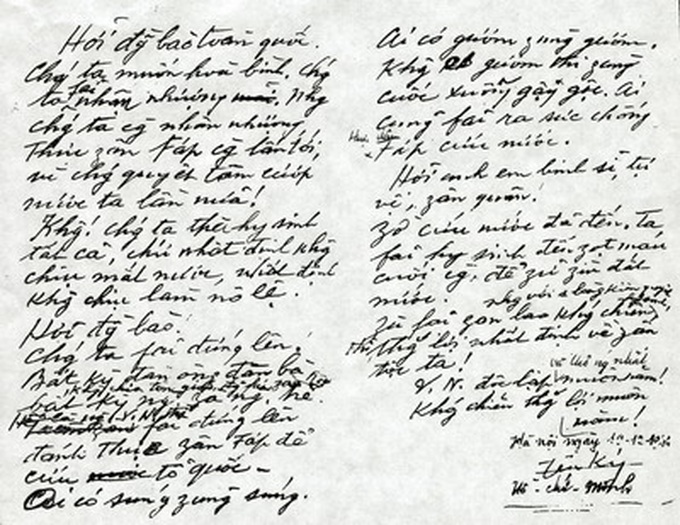 Hỡi đg̀ bào toàn quốc.
Chǵ ta muốn hoà bình. Chǵ
ta fải nhân nhượng. Nhg
chǵ ta cg̀ nhân nhượng,
Thực zân Fáp cg̀ lấn tới,
vì chǵ quyết tâm cướp
nước ta lần nữa!
Khg! chǵ ta thà hy sinh
tất cả, chứ nhất định khg
chịu mất nước, nhất định
khg chịu làm nô lệ.
Hỡi đg̀ bào!
Chǵ ta fải đứng lên!
Bất kỳ đàn ông đàn bà
bất kỳ ng. zà ng. trẻ.
fải đứng lên
đánh Thực zân Fáp để
cứu tổ quốc -
Ai có súng zùng súng.
Ai có gươm zùng gươm,
Khg gươm thì zùng
cuốc xuổng gậy gộc. Ai
cũng fải ra sức chống
Fáp cứu nước.
Hỡi anh em binh sĩ, tự
vệ, zân quân!
Zờ cứu nước đã đến. Ta
fải hy sinh đến zọt máu
cuối cg̀, để zữ zìn đất
nước.
Zù fải zan lao khg chiến
thắg lợi nhất định về zân
tộc ta!
V.N. độc lập và thốg nhất
muôn năm!
Khg chiến thắg lợi muôn
năm!
Hà nội ngày
Hồ - chí - Minh